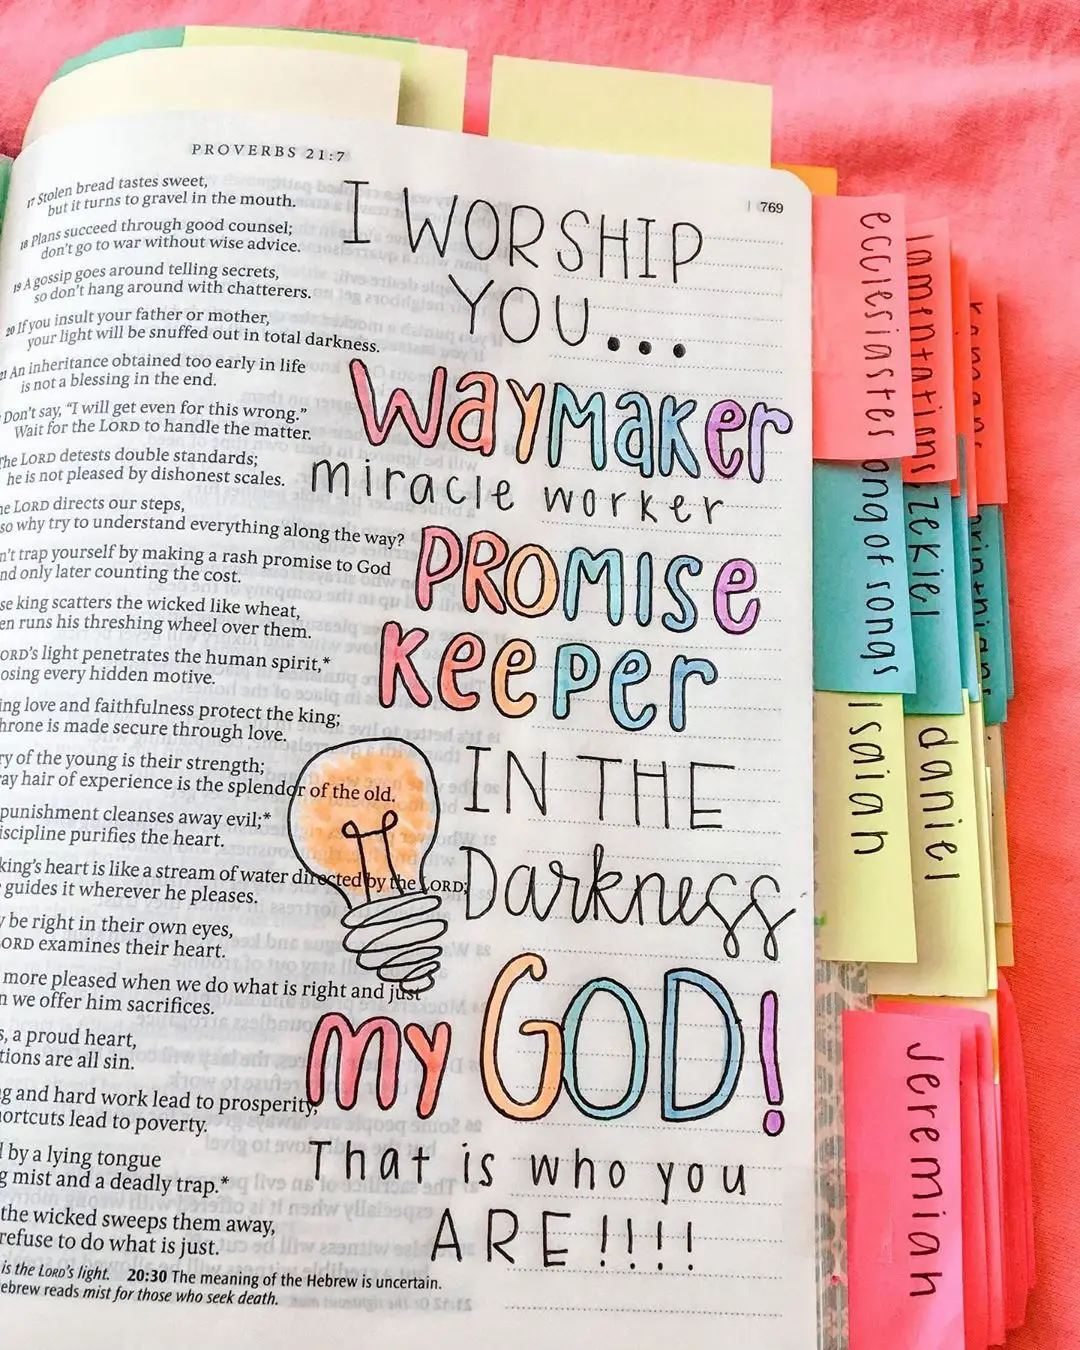 PROVERBS 21:7
769
17 Stolen bread tastes sweet,
but it turns to gravel in the mouth.
18 Plans succeed through good counsel;
don't go to war without wise advice.
19 A gossip goes around telling secrets,
so don't hang around with chatterers.
20 If you insult your father or mother,
your light will be snuffed out in total darkness.
21 An inheritance obtained too early in life
is not a blessing in the end.
Don't say, "I will get even for this wrong."
Wait for the LORD to handle the matter.
The LORD detests double standards;
he is not pleased by dishonest scales.
LORD directs our steps,
so why try to understand everything along the way?
trap yourself by making a rash promise to God
and only later counting the cost.
king scatters the wicked like wheat,
runs his threshing wheel over them.
light penetrates the human spirit,*
every hidden motive.
love and faithfulness protect the king;
throne is made secure through love.
of the young is their strength;
hair of experience is the splendor of the old.
punishment cleanses away evil;*
discipline purifies the heart.
king's heart is like a stream of water directed by the LORD;
guides it wherever he pleases.
be right in their own eyes,
LORD examines their heart.
more pleased when we do what is right and just
we offer him sacrifices.
a proud heart,
are all sin.
and hard work lead to prosperity,
shortcuts lead to poverty.
by a lying tongue
mist and a deadly trap.*
the wicked sweeps them away,
refuse to do what is just.
is the LORD's light. 20:30 The meaning of the Hebrew is uncertain.
reads mist for those who seek death.
I WORSHIP
YOU...
WayMaKer
miracle worker
PROMISe
KeePer
IN THE
Darkness
MY GOD!
That is who you
ARE!!!!
ecclesiastes
lamentations
song of songs
ezekiel
Isaiah
daniel
Jeremiah